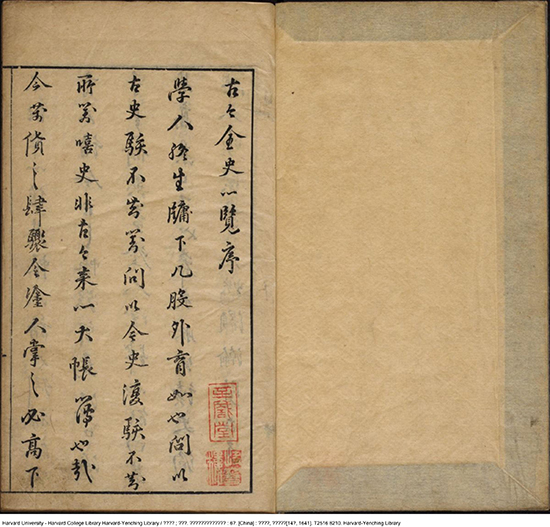 古今全史一覽序
學人終生牖下几股外育如也問以
古史駭不對問以今史復駭不對
所對嘻史非古今來一大帳簿也哉
今萬貨之肆驟令塗人掌之必高下
Harvard University - Harvard College Library Harvard-Yenching Library / ???? ; ???. ????????????? : 67. [China] : ????, ?????[14?, 1641]. T2516 8210. Harvard-Yenching Library